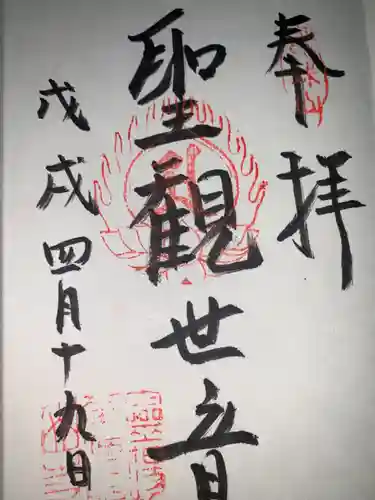 奉拝
聖観世音
戊戌四月十九日